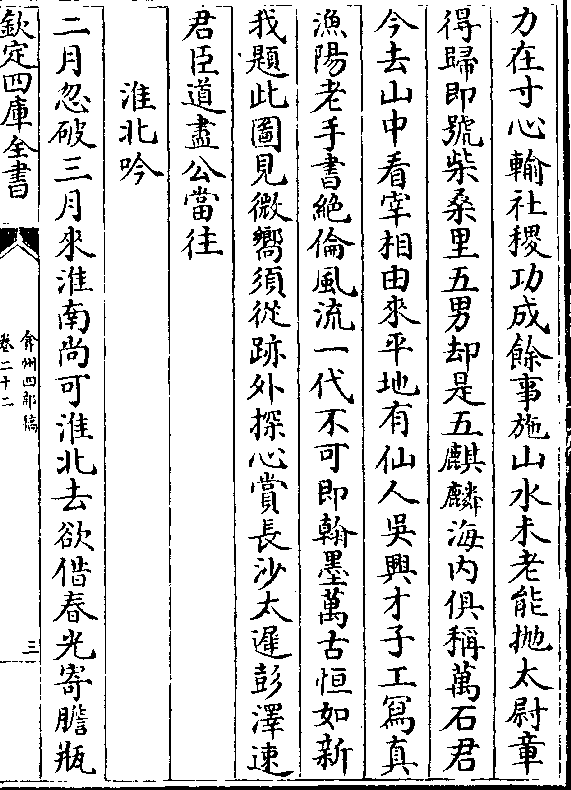 力在寸心輸社稷功成餘事施山水未老能拋太尉章
得歸即號柴桑里五男却是五麒麟海内俱稱萬石君
今去山中看宰相由來平地有仙人吳興才子工寫真
漁陽老手書絕倫風流一代不可即翰墨萬古恒如新
我題此圖見微嚮須從跡外探心賞長沙太遲彭澤速
君臣道盡公當往
淮北吟
二月忽破三月來淮南尚可淮北去欲借春光寄膽瓶
欽定四庫全書
弇州四部稿
卷二十二
三